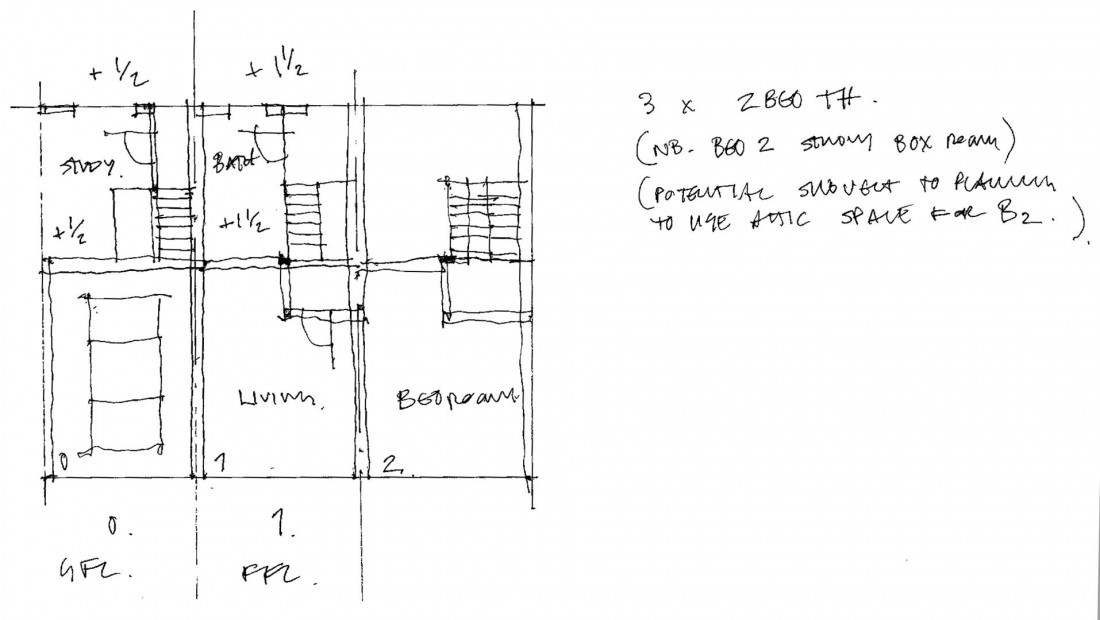 + 1/2
+ 1 1/2
STUDY.
BATH
+ 1/2
+1 1/2
LIVING.
BEDROOM
0
1
2.
0.
1.
GFL.
FFL.
3 x 2 BED TH.
(NB. BED 2 STUDY BOX ROOM)
(POTENTIAL SUBJECT TO PLANNING
TO USE ATTIC SPACE FOR B2.)